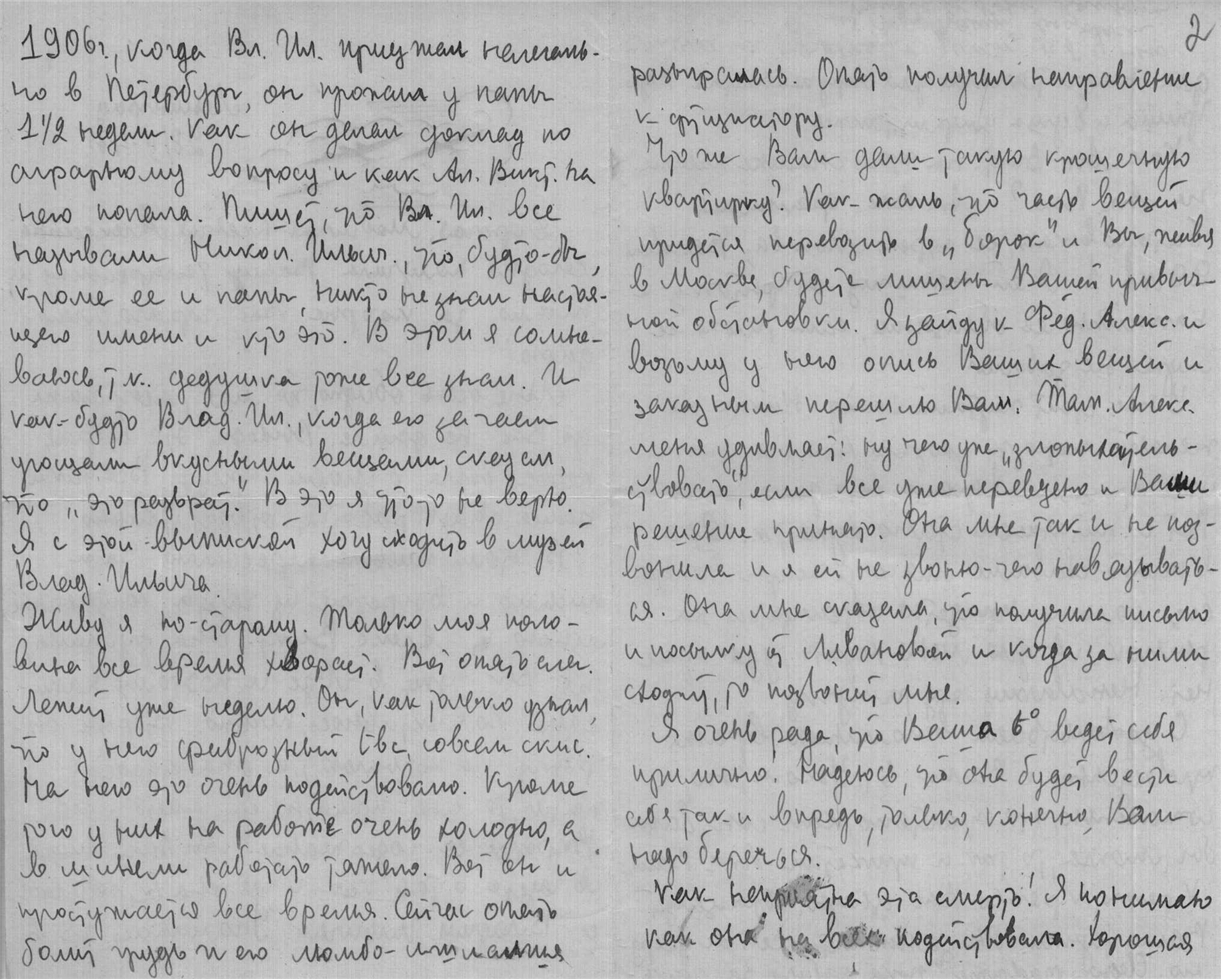 1906г., когда Вл. Ил. приезжал нелегаль-
но в Петербург, он прожил у папы
1 1/2 недели. Как он делал доклад по
аграрному вопросу и как Ал. Викт. на
него попала. Пишет, что Вл. Ил. все
называли Никол. Ильич., что, будто-бы,
кроме ее и папы, никто не знал настоя-
щего имени и кто это. В этом я сомне-
ваюсь, т.к. дедушка тоже все знал. И
как-будто Влад. Ил., когда его за чаем
угощали вкусными вещами, сказал,
что „это разврат". В это я что-то не верю.
Я с этой выпиской хочу сходить в музей
Влад. Ильича.
Живу я по-старому. Только моя поло-
вина все время хворает. Вот опять слег.
Лежит уже неделю. Он, как только узнал,
что у него фиброзный tbc, совсем скис.
На него это очень подействовало. Кроме
того у них на работе очень холодно, а
в шинели работать тяжело. Вот он и
простужается все время. Сейчас опять
болит грудь и его люмбо-ишиалгия
2
разыгралась. Опять получил направление
к фтизиатору.
Что же Вам дали такую крошечную
квартирку? Как жаль, что часть вещей
придется перевозить в „борок" и Вы, живя
в Москве, будете лишены Вашей привыч-
ной обстановки. Я зайду к Фед. Алекс. и
возьму у него опись Ваших вещей и
заказным перешлю Вам. Там. Алекс.
меня удивляет: ну чего уже „злопыхатель-
ствовать", если все уже переведено и Ваши
решение принято. Она мне так и не поз-
вонила и я ей не звоню-чего навязывать-
ся. Она мне сказала, что получила письмо
и посылку от Ливановой и когда за ними
сходит, то позвонит мне.
Я очень рада, что Ваша t° ведет себя
прилично! Надеюсь, что она будет вести
себя так и впредь, только, конечно, Вам
надо беречься.
Как неприятна эта смерть! Я понимаю
как она на всех подействовала. Хорошая